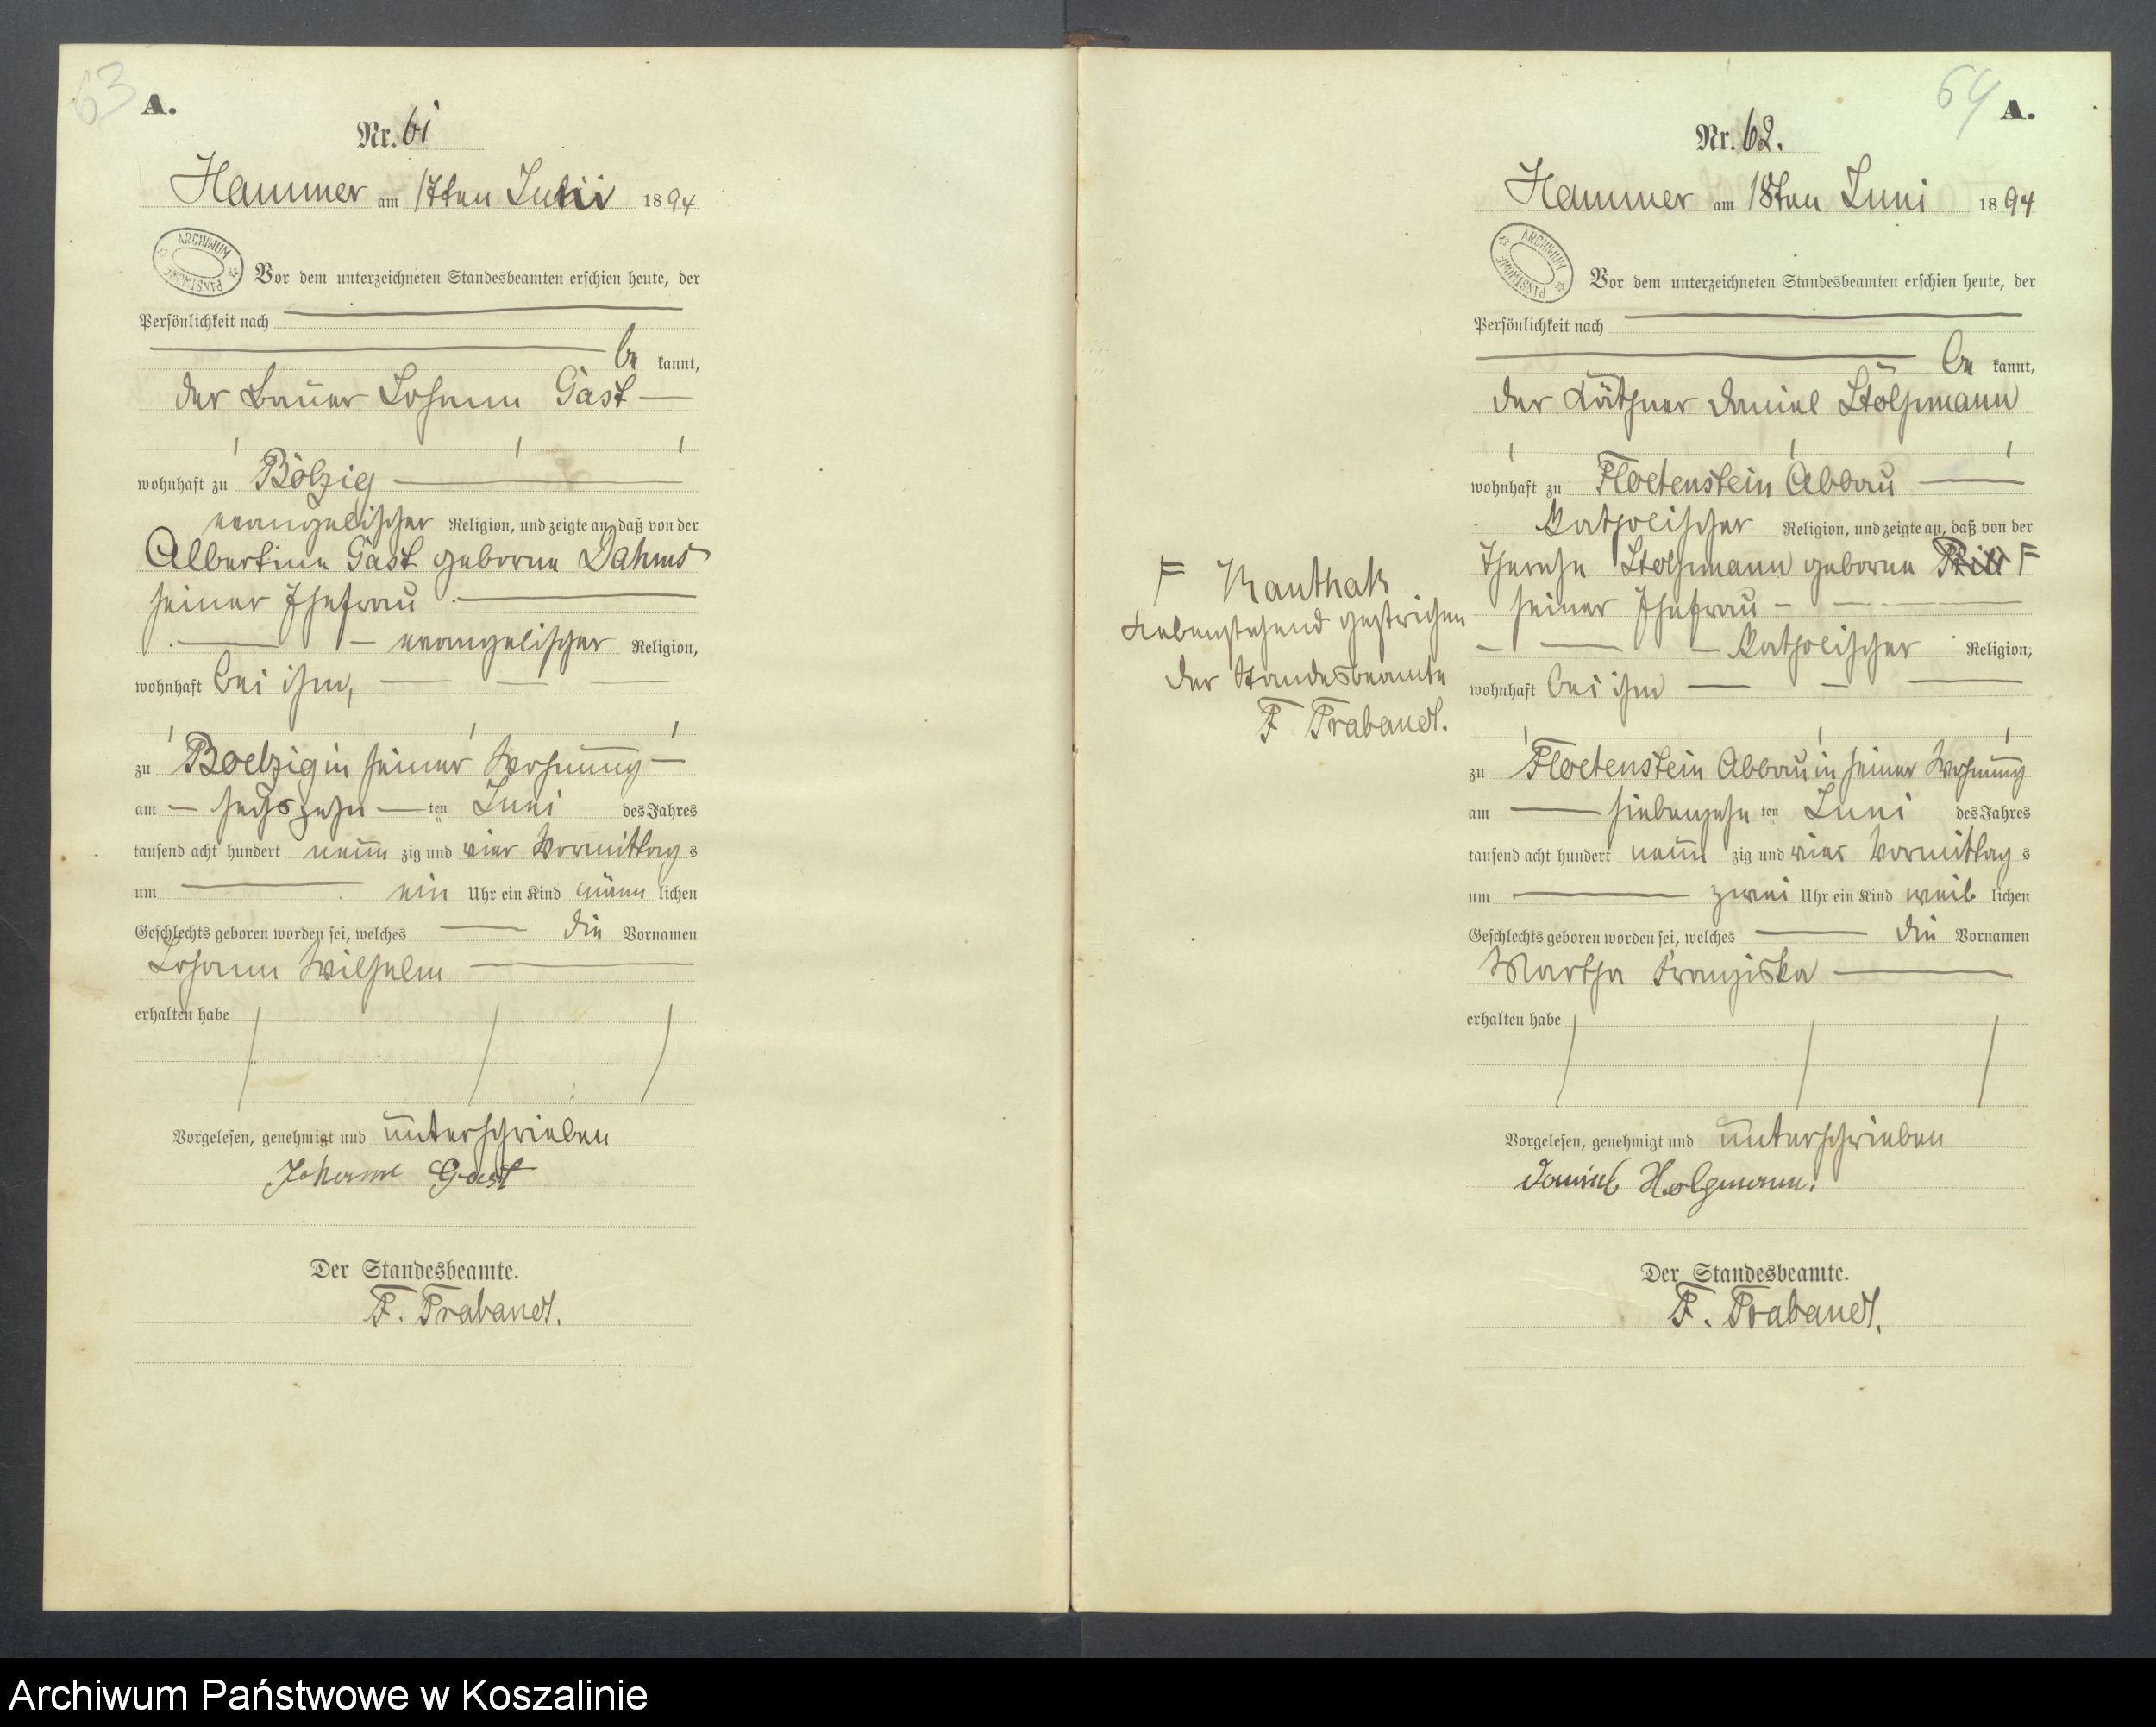 63
A.
Nr. 61
Hammer am 17ten Juni 1894
ARCHIWUM PAŃSTWOWE
Vor dem unterzeichneten Standesbeamten erschien heute, der
Persönlichkeit nach
be kannt,
der Bauer Johann Gast
wohnhaft zu Bölzig
evangelischer Religion, und zeigte an, daß von der
Albertine Gast geborne Dahms
seiner Ehefrau
evangelischer Religion,
wohnhaft bei ihm,
zu Boelzig in seiner Wohnung
am sechszehn ten Juni des Jahres
tausend acht hundert neun zig und vier Vormittag s
um ein Uhr ein Kind männ lichen
Geschlechts geboren worden sei, welches die Vornamen
Johann Wilhelm
erhalten habe
Vorgelesen, genehmigt und unterschrieben
Johann Gast
Der Standesbeamte.
F. Trabandt.
64
A.
Nr. 62.
Hammer am 18ten Juni 1894
ARCHIWUM PAŃSTWOWE
Vor dem unterzeichneten Standesbeamten erschien heute, der
Persönlichkeit nach
be kannt,
der Käthner Daniel Stölpmann
wohnhaft zu Floetenstein Abbau
katholischer Religion, und zeigte an, daß von der
Therese Stolpmann geborne Prill F
seiner Ehefrau
katholischer Religion,
wohnhaft bei ihm
zu Floetenstein Abbau in seiner Wohnung
am siebenzehn ten Juni des Jahres
tausend acht hundert neun zig und vier Vormittag s
um zwei Uhr ein Kind weib lichen
Geschlechts geboren worden sei, welches die Vornamen
Martha Franziska
erhalten habe
Vorgelesen, genehmigt und unterschrieben
Daniel Stolpmann.
Der Standesbeamte.
F. Trabandt.
F Kanthak
Nebenstehend gestrichen
Der Standesbeamte
F Trabandt.
Archiwum Państwowe w Koszalinie